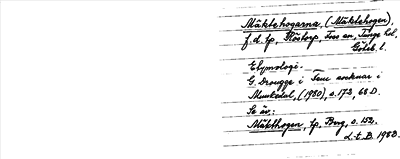 Mäktehogarna, (Mäktehogen),
f.d. tp, Röstorp, Foss sn, Tunge hd,
Göteb. l.
Etymologi.
G. Drougge i Fem socknar i
Munkedal, (1980), s. 173, 68 D.
Se äv.:
Mäkthogen, tp, Berg, s. 152.
L.t.B. 1983.